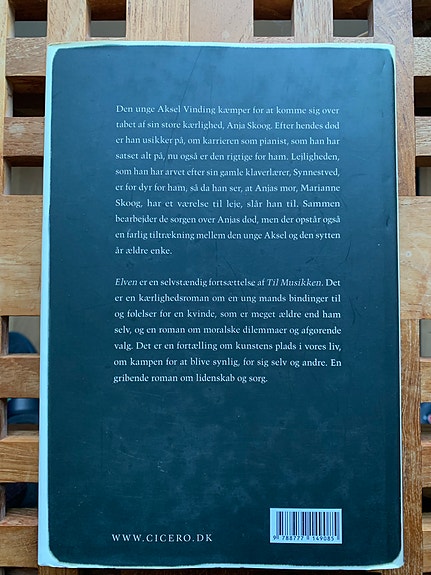 Den unge Aksel Vinding kæmper for at komme sig over
tabet af sin store kærlighed, Anja Skoog. Efter hendes død
er han usikker på, om karrieren som pianist, som han har
satset alt på, nu også er den rigtige for ham. Lejligheden,
som han har arvet efter sin gamle klaverlærer, Synnestvedt,
er for dyr for ham, så da han ser, at Anjas mor, Marianne
Skoog, har et værelse til leje, slår han til. Sammen
bearbejder de sorgen over Anjas død, men der opstår også
en farlig tiltrækning mellem den unge Aksel og den sytten
år ældre enke.
Elven er en selvstændig fortsættelse af Til Musikken. Det
er en kærlighedsroman om en ung mands bindinger til
og følelser for en kvinde, som er meget ældre end ham
selv, og en roman om moralske dilemmaer og afgørende
valg. Det er en fortælling om kunstens plads i vores liv,
om kampen for at blive synlig, for sig selv og andre. En
gribende roman om lidenskab og sorg.
WWW.CICERO.DK
9 788777 149085